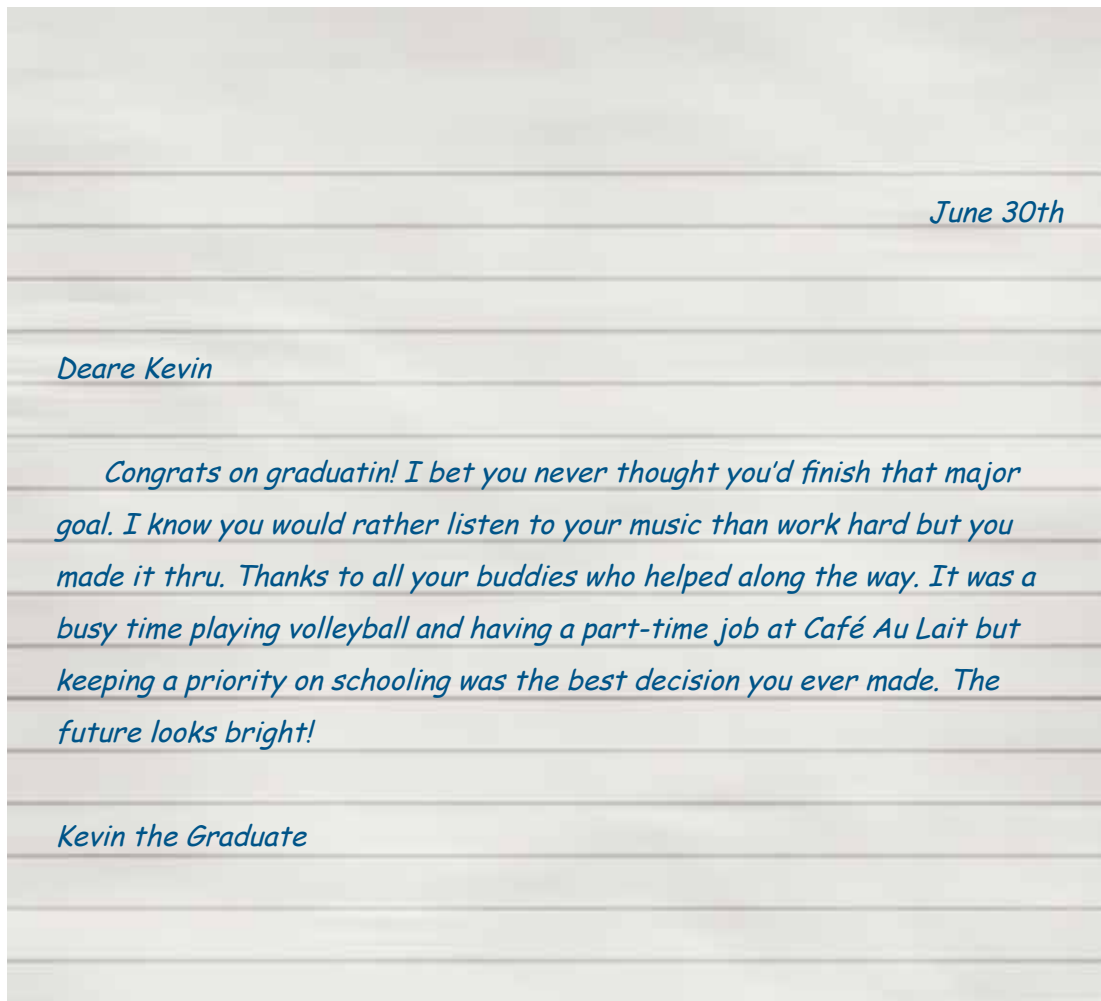 June 30th
Deare Kevin
Congrats on graduatin! I bet you never thought you’d finish that major
goal. I know you would rather listen to your music than work hard but you
made it thru. Thanks to all your buddies who helped along the way. It was a
busy time playing volleyball and having a part-time job at Café Au Lait but
keeping a priority on schooling was the best decision you ever made. The
future looks bright!
Kevin the Graduate